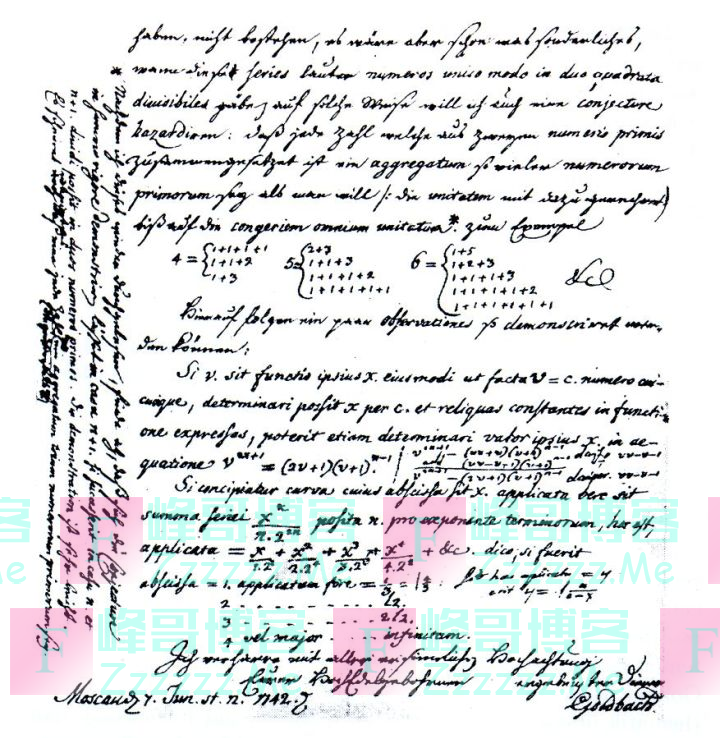 haben, nicht bestehen, es wäre aber schon was sonderliches,
wann diese series lauter numeros unico modo in duo quadrata
divisibiles gäbe, auf solche Weise will ich auch eine conjecture
hazardiren: daß jede Zahl welche aus zweyen numeris primis
zusammengesetzet ist ein aggregatum so vieler numerorum
primorum sey als man will /: die unitatem mit dazu gerechnet
biß auf die congeriem omnium unitatum*. zum Exempel
4 = { 1+1+1+1 5 = { 2+3 6 = { 1+5
1+1+2 1+1+3 1+2+3
1+3 1+1+1+2 1+1+1+3
1+1+1+1+1 1+1+1+1+2
1+1+1+1+1+1 &c
Hierauf folgen ein paar observationes so demonstriret wer-
den können:
Si v. sit functio ipsius x. eiusmodi ut facta v = c. numero cui-
cunque, determinari possit x per c. et reliquas constantes in functi-
one expressas, poterit etiam determinari valor ipsius x. in ae-
quatione v^{2n+1} = (2v+1)(v+1)^{n-1}
Si concipiatur curva cuius abscissa sit x. applicata vero sit
summa seriei x^n/n.2^{2n} posita n. pro exponente terminorum, hoc est,
applicata = x/1.2^2 + x^2/2.2^4 + x^3/3.2^6 + x^4/4.2^8 + &c. dico, si fuerit
abscissa = 1. applicatam fore =
2 . . . . . . . l2.
3 . . . . . . . 2l2.
4 vel major . . . infinitam.
Ich verharre mit aller ersinnlichen Hochachtung
Eurer Hochedelgebohrnen ergebenster Diener
Moscau d. 7. Jun. st. n. 1742. Goldbach.
* Nachdem ich dieses wieder durchgelesen, finde ich, daß sich die conjecture
in summo rigore demonstriren lässet in casu n+1. si successerit in casu n et
n+1. dividi possit in duos numeros primos. Die demonstration ist sehr leicht.
Es scheinet wenigstens, daß eine jede Zahl ein aggregatum trium numerorum primorum sey.
峰哥博客
Zzzzzz.Me
F